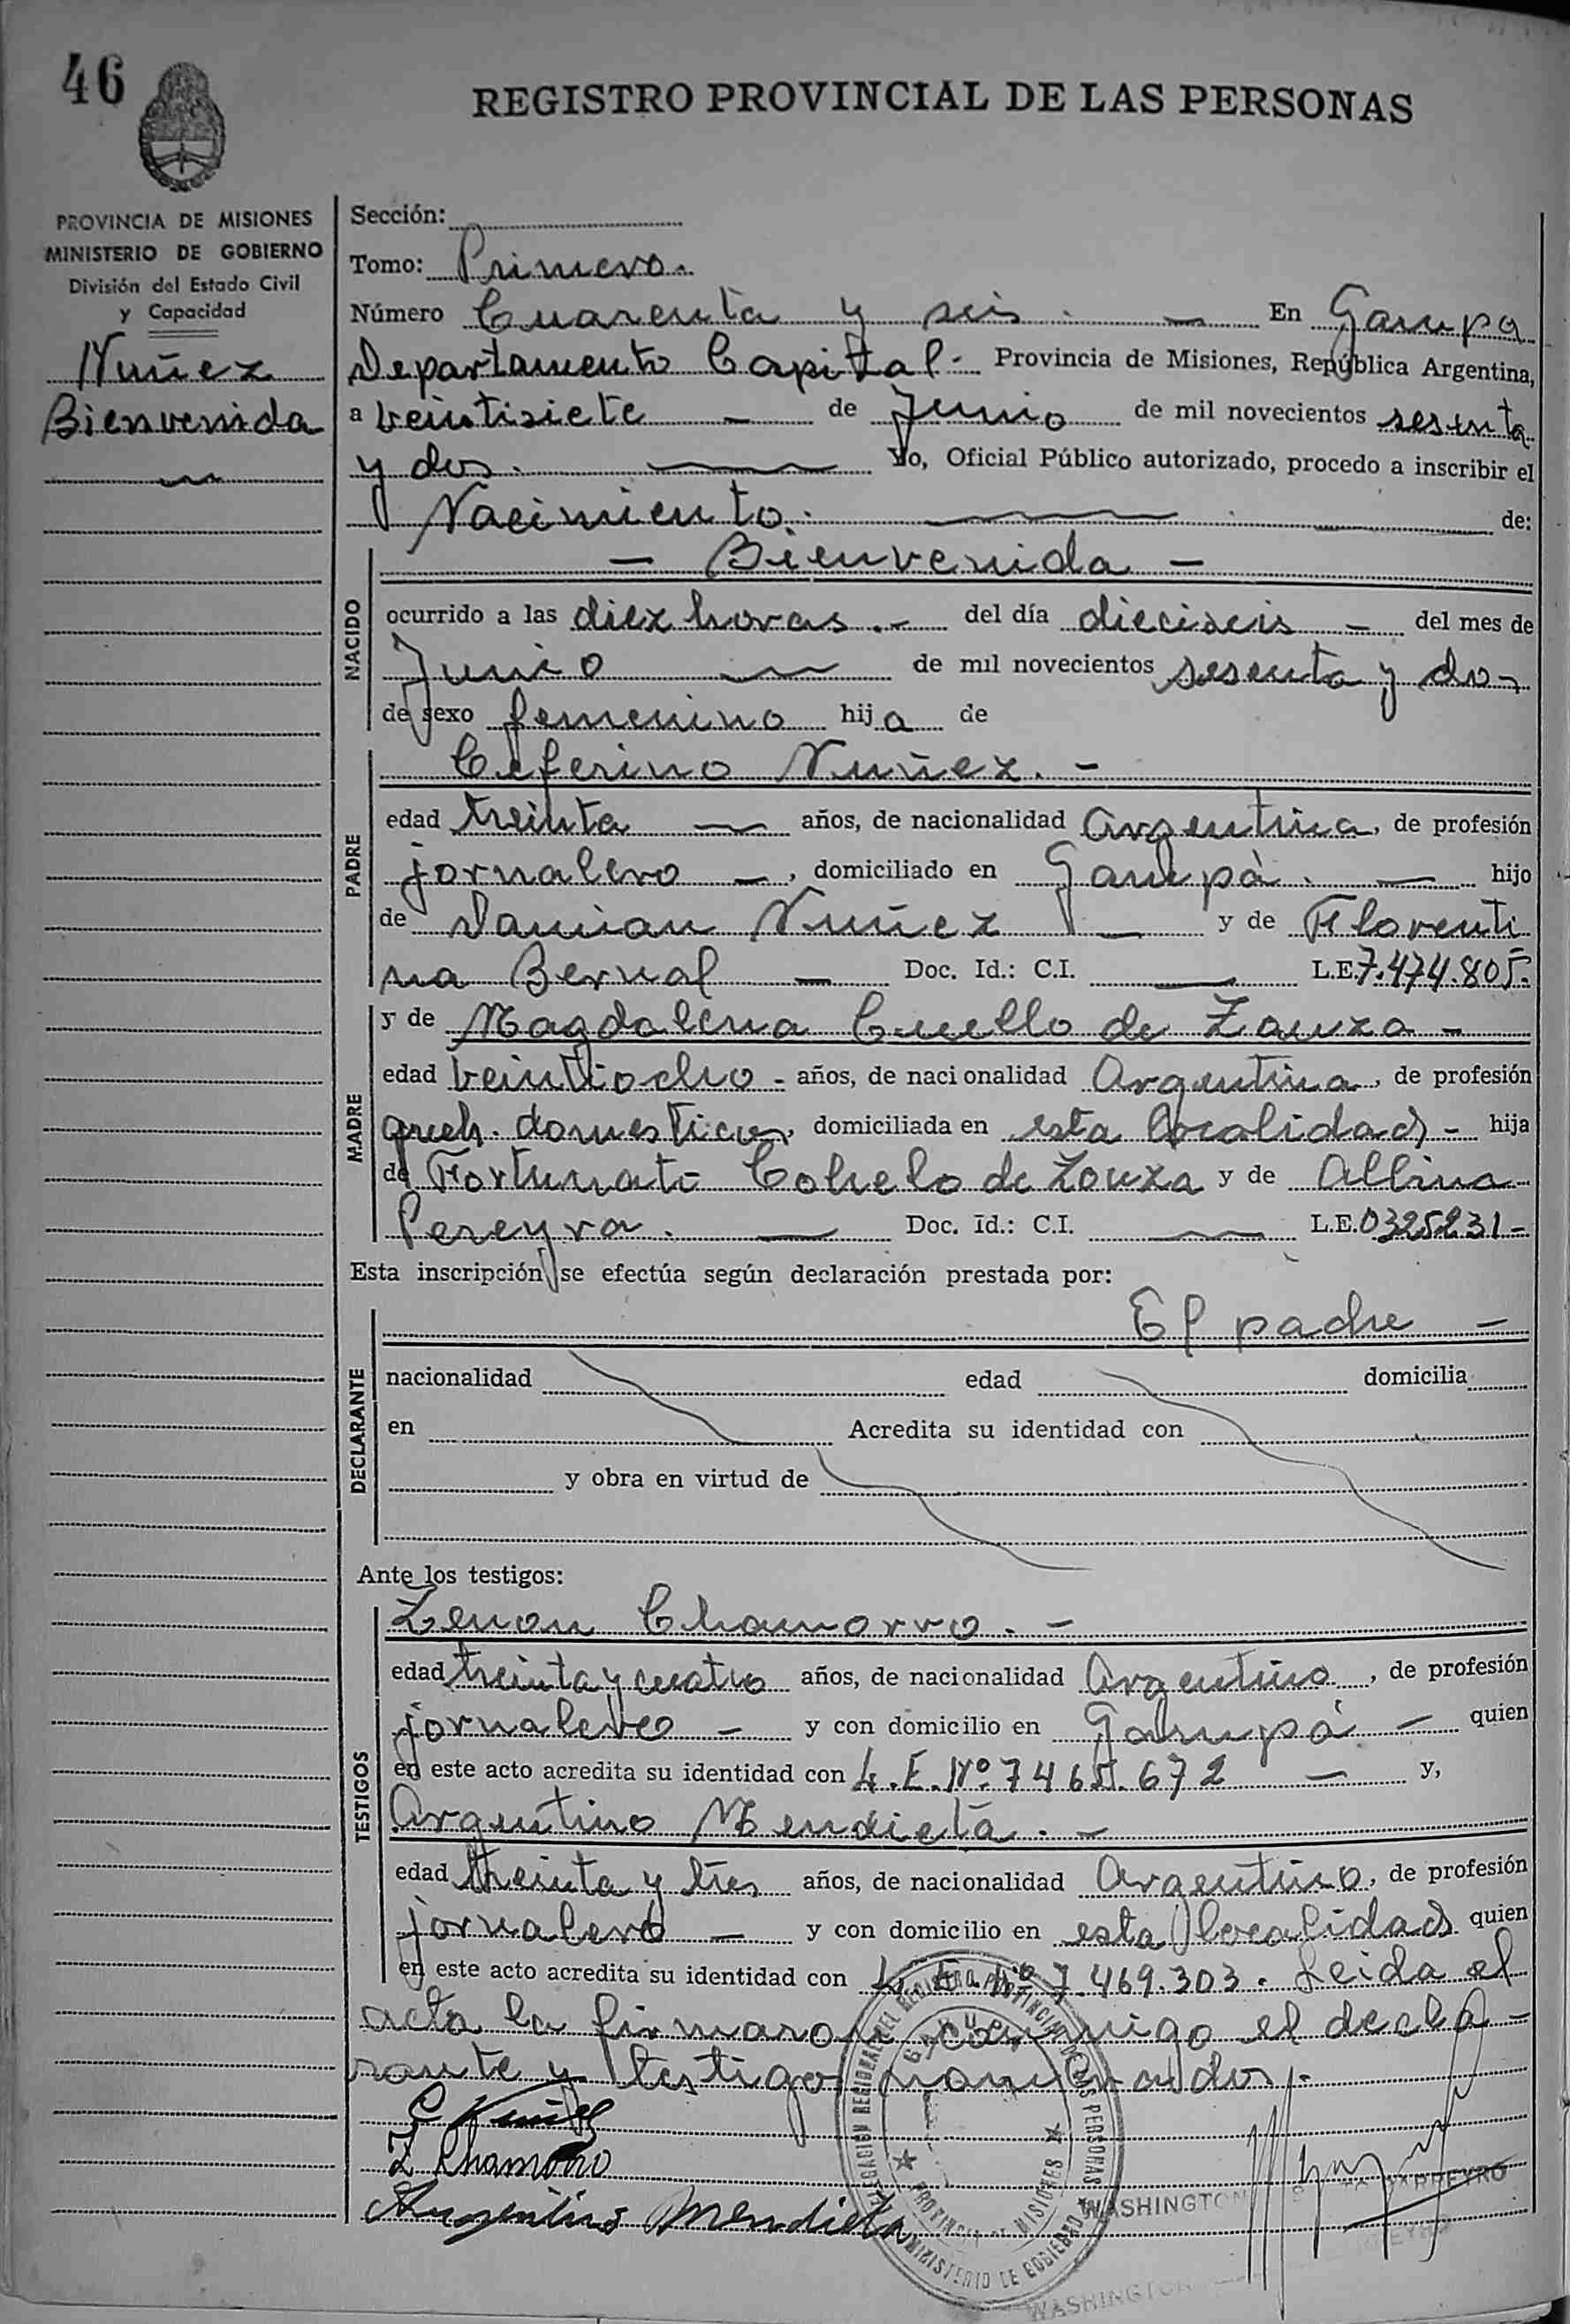 46
REGISTRO PROVINCIAL DE LAS PERSONAS
PROVINCIA DE MISIONES
MINISTERIO DE GOBIERNO
División del Estado Civil
y Capacidad
Nuñez
Bienvenida
Sección:
Tomo: Primero.
Número Cuarenta y seis. — En Garupa
Departamento Capital - Provincia de Misiones, República Argentina,
a veintisiete — de Junio de mil novecientos sesenta
y dos. — Yo, Oficial Público autorizado, procedo a inscribir el
Nacimiento. — de:
NACIDO
— Bienvenida —
ocurrido a las diez horas. — del día dieciseis — del mes de
Junio — de mil novecientos sesenta y dos
de sexo femenino hija de
PADRE
Ceferino Nuñez. —
edad treinta — años, de nacionalidad Argentina, de profesión
jornalero —, domiciliado en Garupá. — hijo
de Damian Nuñez — y de Florenti
na Bernal — Doc. Id.: C.I. — L.E. 7.474.805.
MADRE
y de Magdalena Cuello de Zauza —
edad veintiocho - años, de nacionalidad Argentina, de profesión
queh. domesticos, domiciliada en esta localidad - hija
de Fortunato Cohelo de Zouza y de Albina
Pereyra. — Doc. Id.: C.I. — L.E. 0325231 -
Esta inscripción se efectúa según declaración prestada por:
DECLARANTE
El padre —
nacionalidad edad domicilia
en Acredita su identidad con
y obra en virtud de
Ante los testigos:
TESTIGOS
Zenon Chamorro. —
edad treinta y cuatro años, de nacionalidad Argentino, de profesión
jornalero — y con domicilio en Garupá — quien
en este acto acredita su identidad con L.E. Nº 7465.672 — y,
Argentino Mendieta. —
edad treinta y tres años, de nacionalidad Argentino, de profesión
jornalero — y con domicilio en esta localidad quien
en este acto acredita su identidad con L.E. Nº 7.469.303. Leida el
acta la firmaron conmigo el decla-
rante y testigos nombrados.-
C Nuñez
Z Chamorro
Argentino Mendieta
DELEGACION REGIONAL DEL REGISTRO PROVINCIAL DE LAS PERSONAS
GARUPA
PROVINCIA DE MISIONES
MINISTERIO DE GOBIERNO
WASHINGTON BARREYRO
WASHINGTON